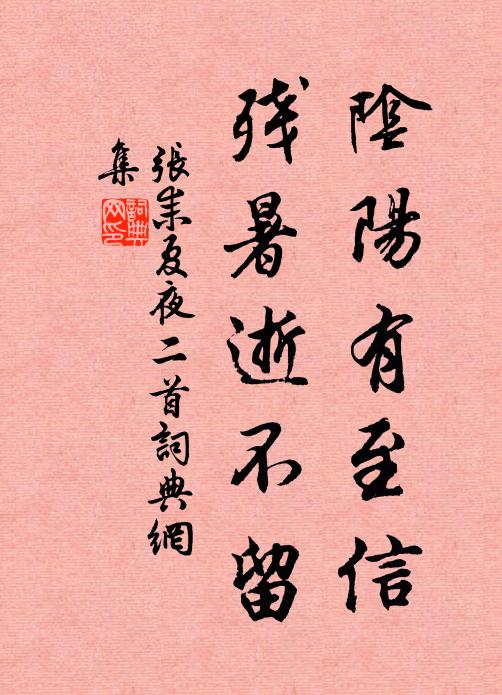 陰陽有至信
残暑逝不留
張耒夏夜二首詞典網
集
詞典
网印